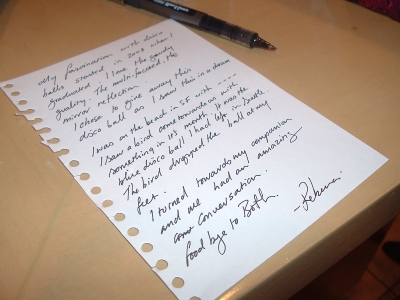 My fascination with disco
balls started in 2003 when I
graduated. I love the gaudy
quality. The multi-faceted, the
mirror reflection.
I chose to give away this
disco ball as I saw this in a dream
I was on the beach in SF with ----
I saw a bird come towards us with
something in it's mouth. It was the
blue disco ball I had left in Seattle.
The bird dropped the ball at my
feet.
I turned towards my companion
and we had an amazing
conversation.
Good bye to Both
-Rebecca